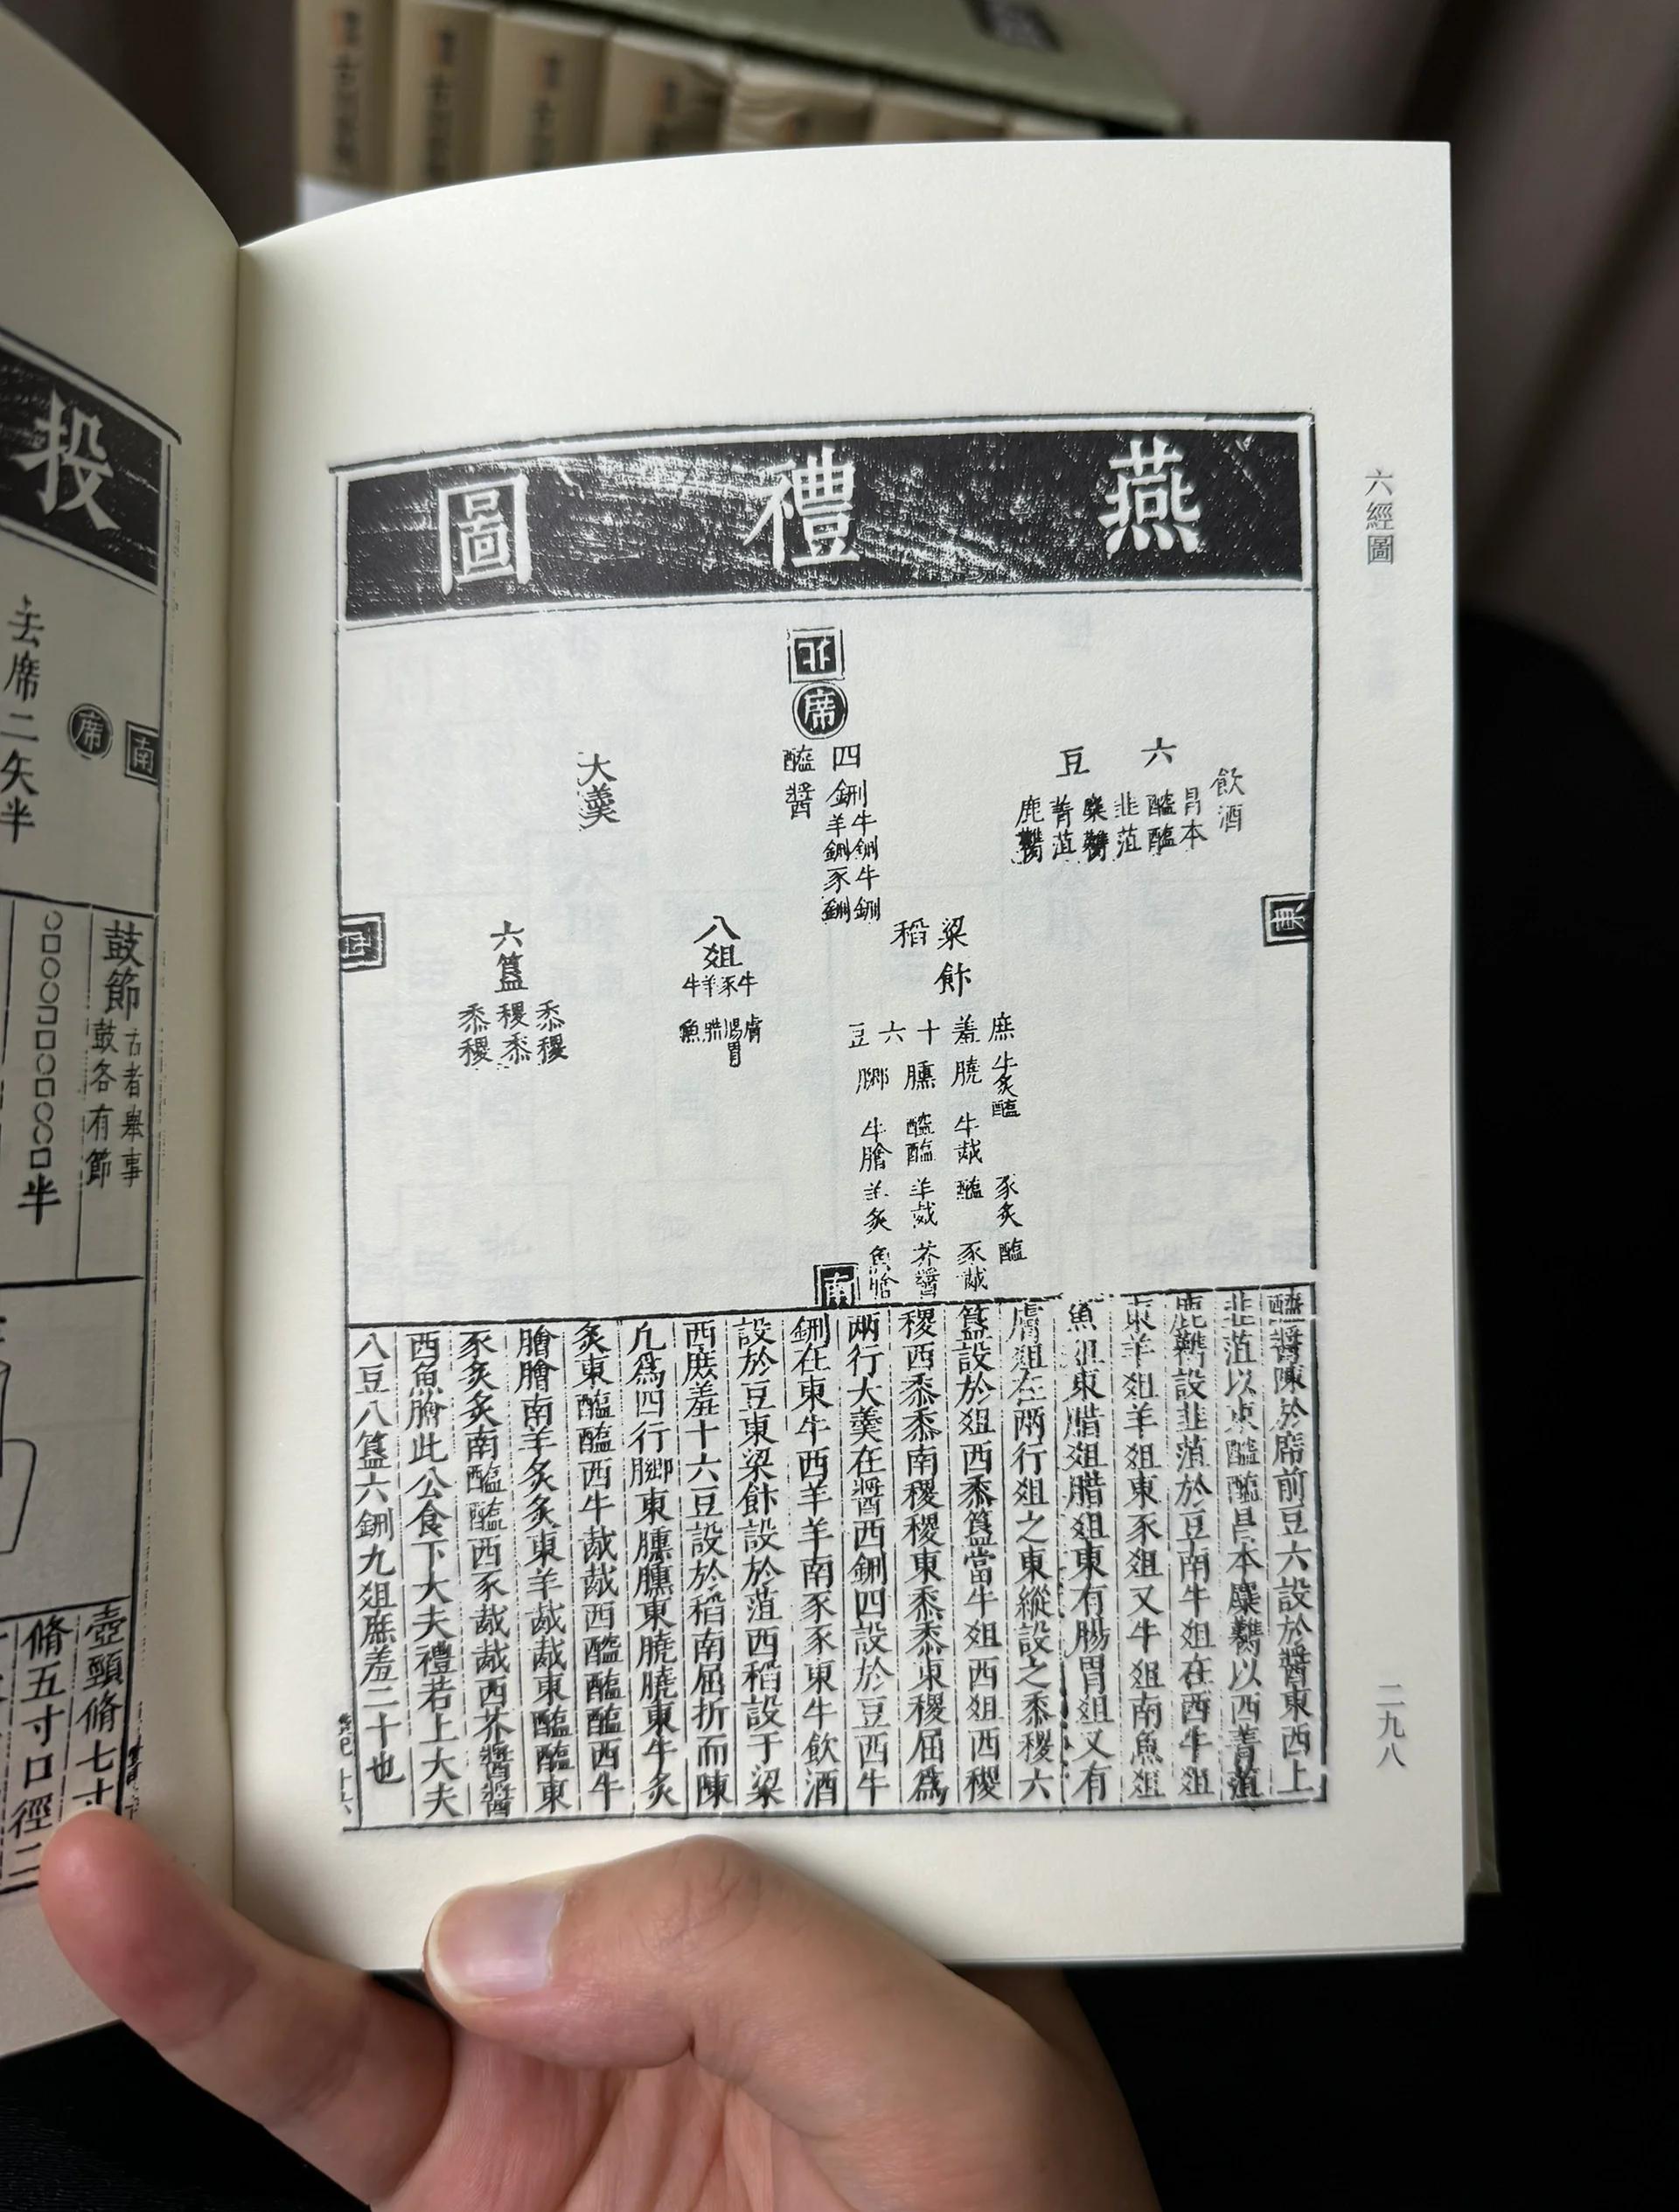 六經圖
二九八
燕禮圖
北
席
東
西
南
飲酒
六豆
昌本
醓醢
韭菹
麋臡
菁菹
鹿臡
四鉶
牛鉶牛鉶
羊鉶豕鉶
醯醬
大羹
粱
稻
飦
八俎
牛羊豕牛
魚腊腸胃膚
六簋
黍稷黍
稷黍稷
庶羞十六豆
牛炙醢 豕炙醢
膮 牛胾 醢 豕胾
臐 醓醢 羊胾 芥醬
膷 牛膾 羊炙 魚膾
醯醬陳於席前豆六設於醬東西上
韭菹以東醓醢昌本麋臡以西菁菹
鹿臡設韭菹於豆南牛俎在西牛俎
東羊俎羊俎東豕俎又牛俎南魚俎
魚俎東腊俎腊俎東有腸胃俎又有
膚俎在兩行俎之東縱設之黍稷六
簋設於俎西黍簋當牛俎西俎西稷
稷西黍黍南稷稷東黍黍東稷屈爲
兩行大羹在醬西鉶四設於豆西牛
鉶在東牛西羊羊南豕豕東牛飲酒
設於豆東粱飦設於菹西稻設于粱
西庶羞十六豆設於稻南屈折而陳
凢爲四行膷東臐臐東膮膮東牛炙
炙東醢醢西牛胾胾西醓醢醢西牛
膾膾南羊炙炙東羊胾胾東醢醢東
豕炙炙南醢醢西豕胾胾西芥醬醬
西魚膾此公食下大夫禮若上大夫
八豆八簋六鉶九俎庶羞二十也
投
南
席
去席二矢半
鼓節
古者舉事
鼓各有節
○□○○□□○□○□○○□半
壺頸脩七寸
脩五寸口徑二